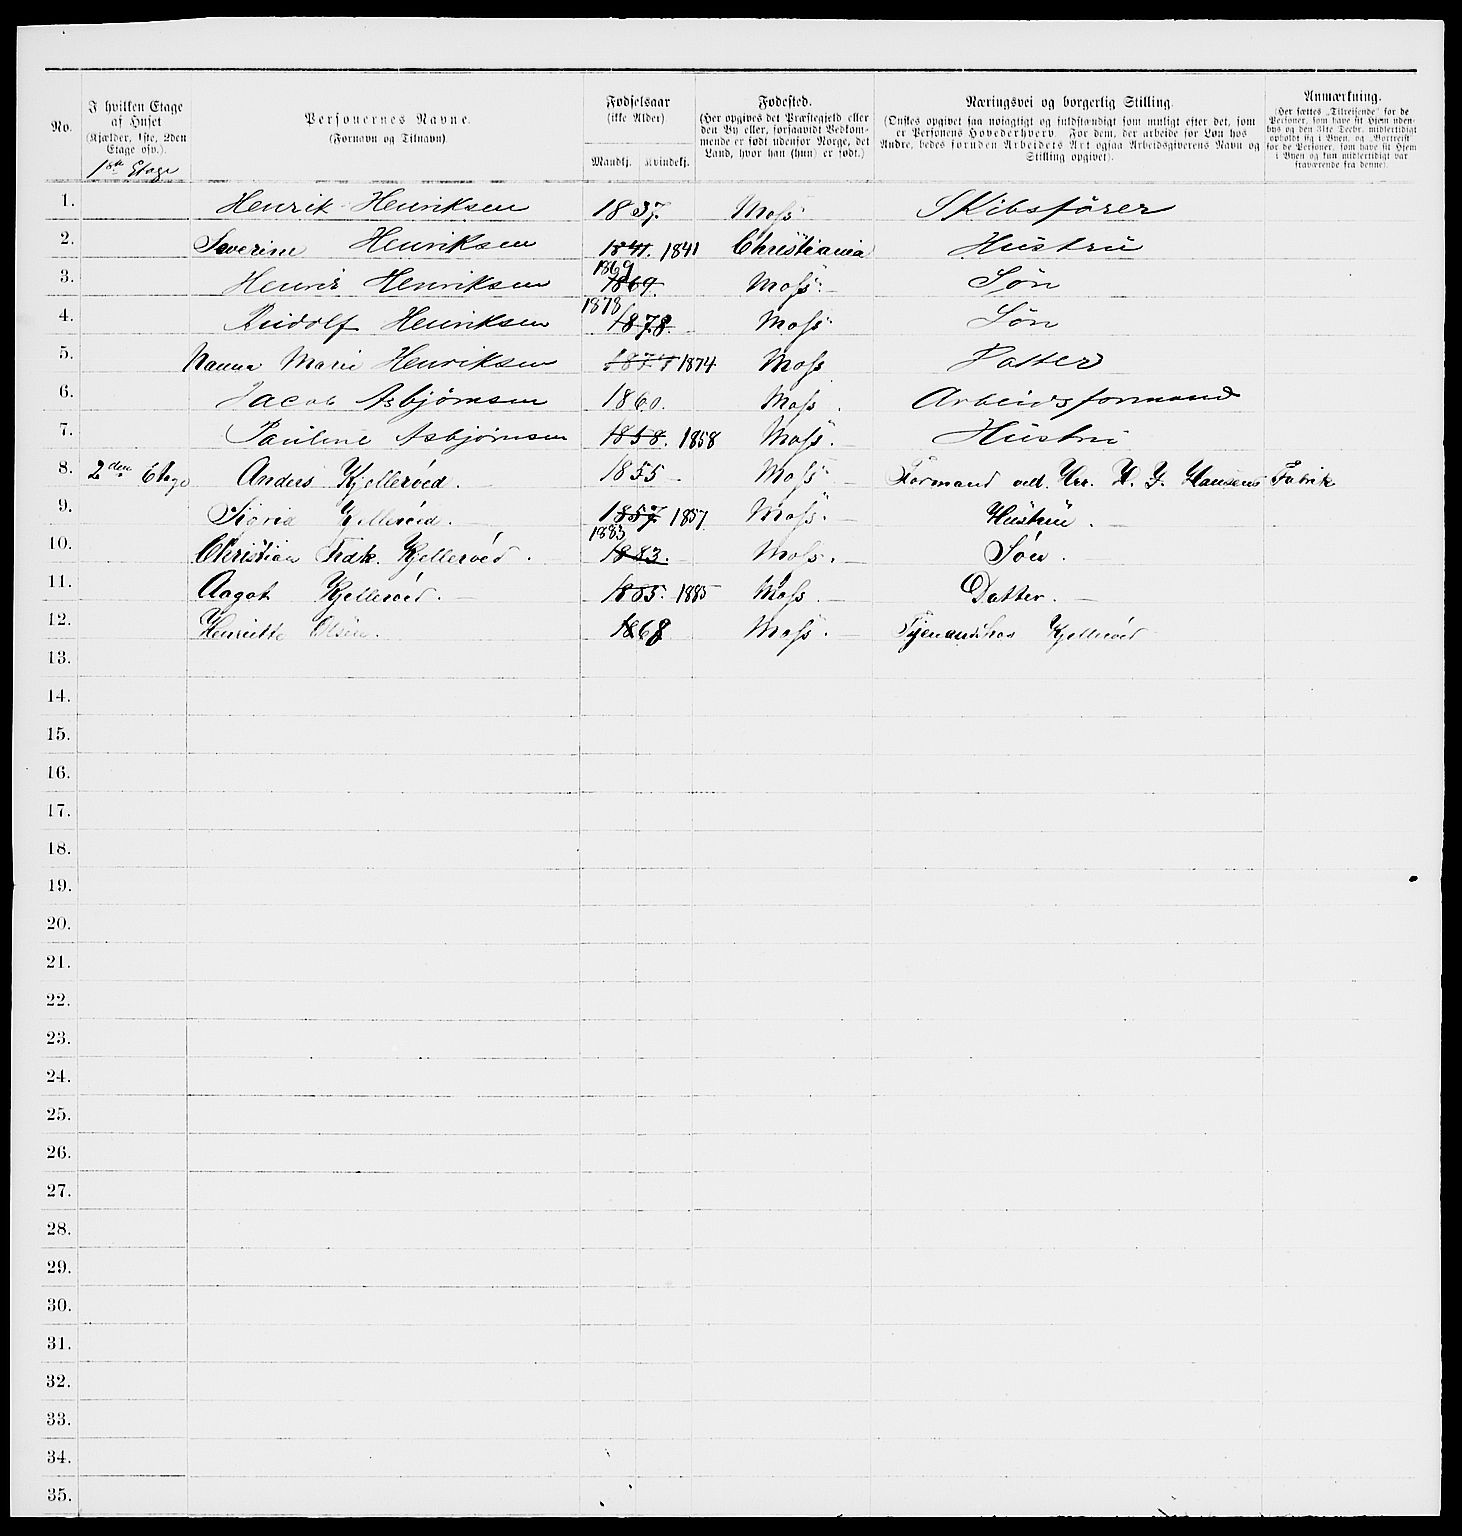 No.
I hvilken Etage af Huset (Kjælder, 1ste, 2den Etage osv.).
1ste Etage
Personernes Navne. (Fornavn og Tilnavn)
Fødselsaar (ikke Alder) Mandkj. Kvindekj.
Fødested. (Her opgives det Præstegjeld eller den By eller, forsaavidt Vedkommende er født udenfor Norge, det Land, hvor han (hun) er født.)
Næringsvei og borgerlig Stilling. (Ønskes opgivet saa nøiagtigt og fuldstændigt som muligt efter det, som er Personens Hovederhverv. For dem, der arbeide for Løn hos Andre, bedes foruden Arbeidets Art ogsaa Arbeidsgiverens Navn og Stilling opgivet).
Anmærkning. (Her sættes „Tilreisende“ for de Personer, som have sit Hjem udenbys og den 31te Decbr. midlertidigt opholdt sig i Byen, og „Bortreist“ for de Personer, som have sit Hjem i Byen og kun midlertidigt var fraværende fra denne).
1. Henrik Henriksen 1837. Moss Skibsfører
2. Severine Henriksen 1841. 1841 Christiania Hustru
3. Henrik Henriksen 1869 1869. Moss. Søn
4. Rudolf Henriksen 1878 1878. Moss. Søn
5. Nanna Marie Henriksen 1874 1874 Moss Datter
6. Jacob Asbjørnsen 1860. Moss. Arbeidsformand
7. Pauline Asbjørnsen 1858. 1858 Moss. Hustru
8. 2den Etage Anders Kjelleröd. 1855 Moss Formand ved Hr. H. G. Hansens Fabrik
9. Sigrid Kjelleröd. 1857. 1857 Moss. Hustru.
10. Christian Fredk. Kjelleröd. 1883 1883. Moss. Søn.
11. Aagot Kjelleröd. 1885. 1885 Moss. Datter.
12. Henriette Olsen. 1868 Moss. Tjenande hos Kjelleröd
13.
14.
15.
16.
17.
18.
19.
20.
21.
22.
23.
24.
25.
26.
27.
28.
29.
30.
31.
32.
33.
34.
35.